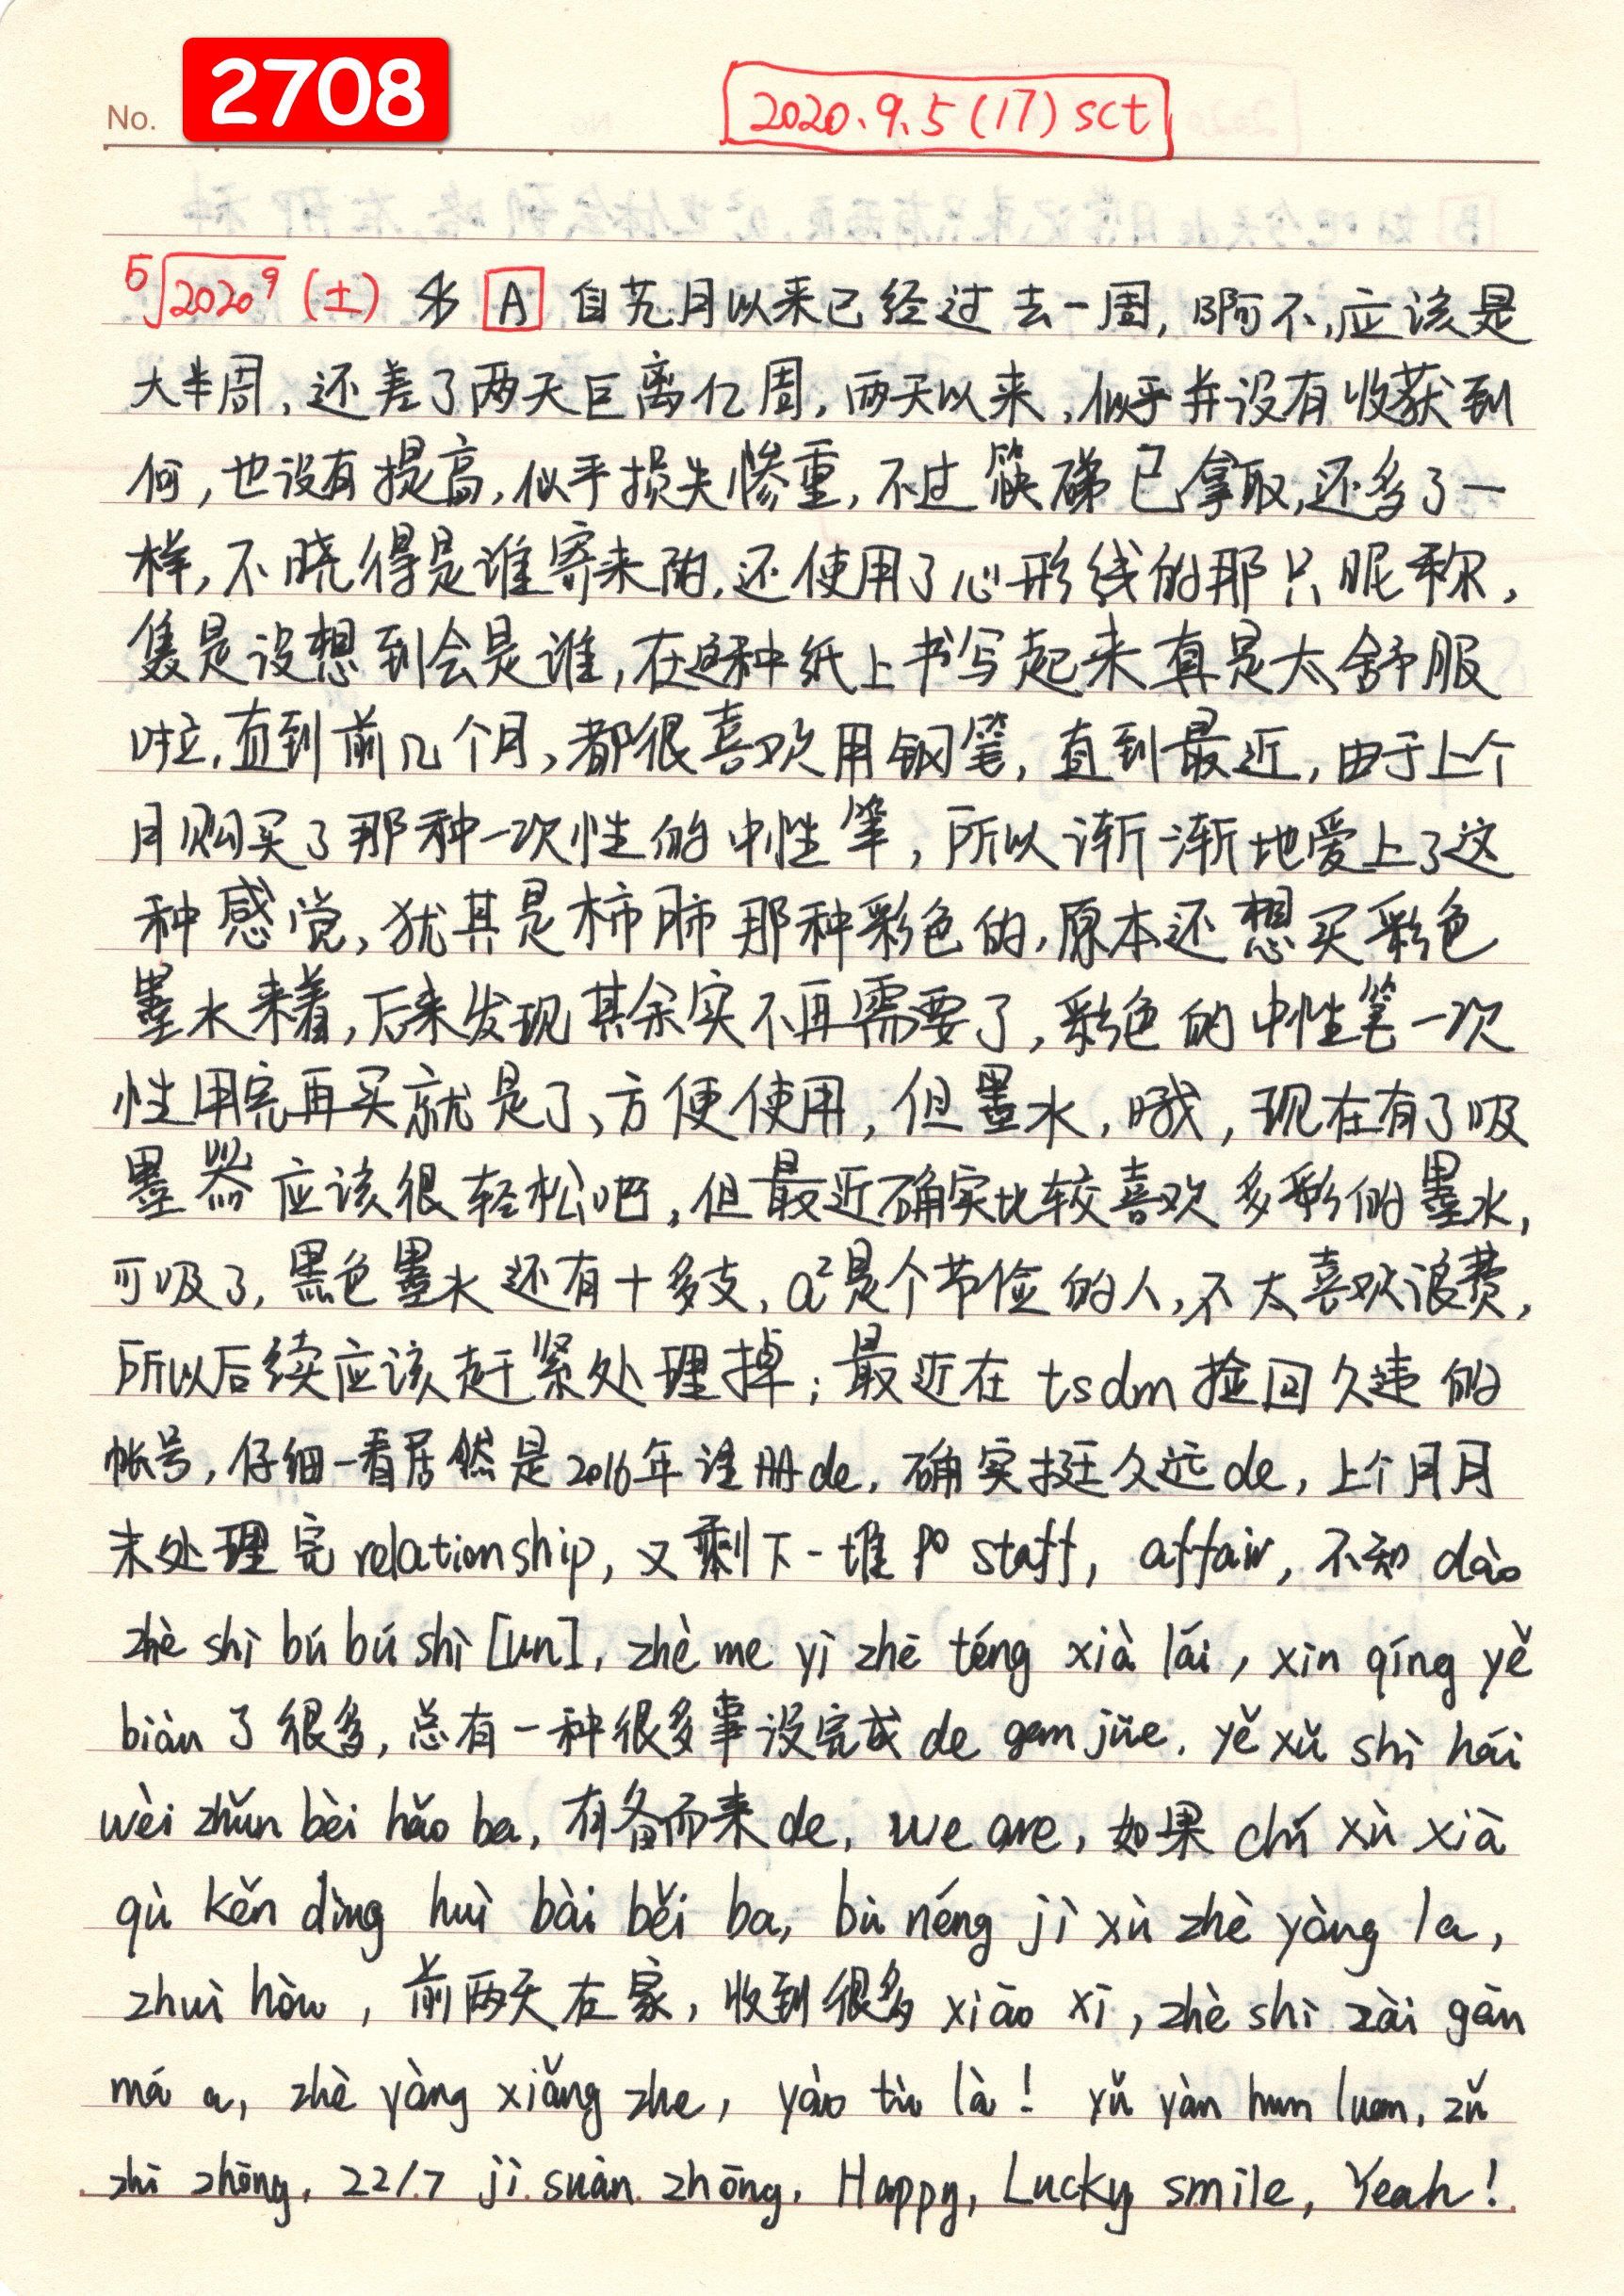 No. 2708
2020.9.5(17)sct
5√2020⁹ (土) A 自艽月以来已经过去一周,啊不,应该是
大半周,还差了两天巨离亿周,两天以来,似乎并没有收获到
何,也没有提高,似乎损失惨重,不过筷碲已拿取,还多了一
样,不晓得是谁寄来的,还使用了心形线的那只昵称,
是没想到会是谁,在这种纸上书写起来真是太舒服
啦,直到前几个月,都很喜欢用钢笔,直到最近,由于上个
月购买了那种一次性的中性笔,所以渐渐地爱上了这
种感觉,犹其是柿肺那种彩色的,原本还想买彩色
墨水来着,后来发现其余实不再需要了,彩色的中性笔一次
性用完再买就是了、方便使用,但墨水,哦,现在有了吸
墨器应该很轻松吧,但最近确实比较喜欢多彩的墨水,
可吸了,黑色墨水还有十多支,a²是个节俭的人,不太喜欢浪费,
所以后续应该赶紧处理掉;最近在tsdm捡回久违的
帐号,仔细一看居然是2016年注册de,确实挺久远de,上个月月
末处理完relationship,又剩下一堆po staff, affair,不知dào
zhè shì bú bú shì [un], zhè me yì zhē téng xià lái, xīn qíng yě
biàn了很多,总有一种很多事没完成de gam jüe. yě xǔ shì hái
wèi zhǔn bèi hǎo ba,有备而来de, we are,如果chí xù xià
qù kěn dìng huì bài běi ba, bù néng jì xù zhè yàng la,
zhuì hòu,前两天在家,收到很多xiāo xī, zhè shì zài gàn
má a, zhè yàng xiǎng zhe, yào tù là! yǔ yàn hun luan, zǔ
zhī zhōng, 22/7 jì suàn zhōng, Happy, Lucky smile, Yeah!